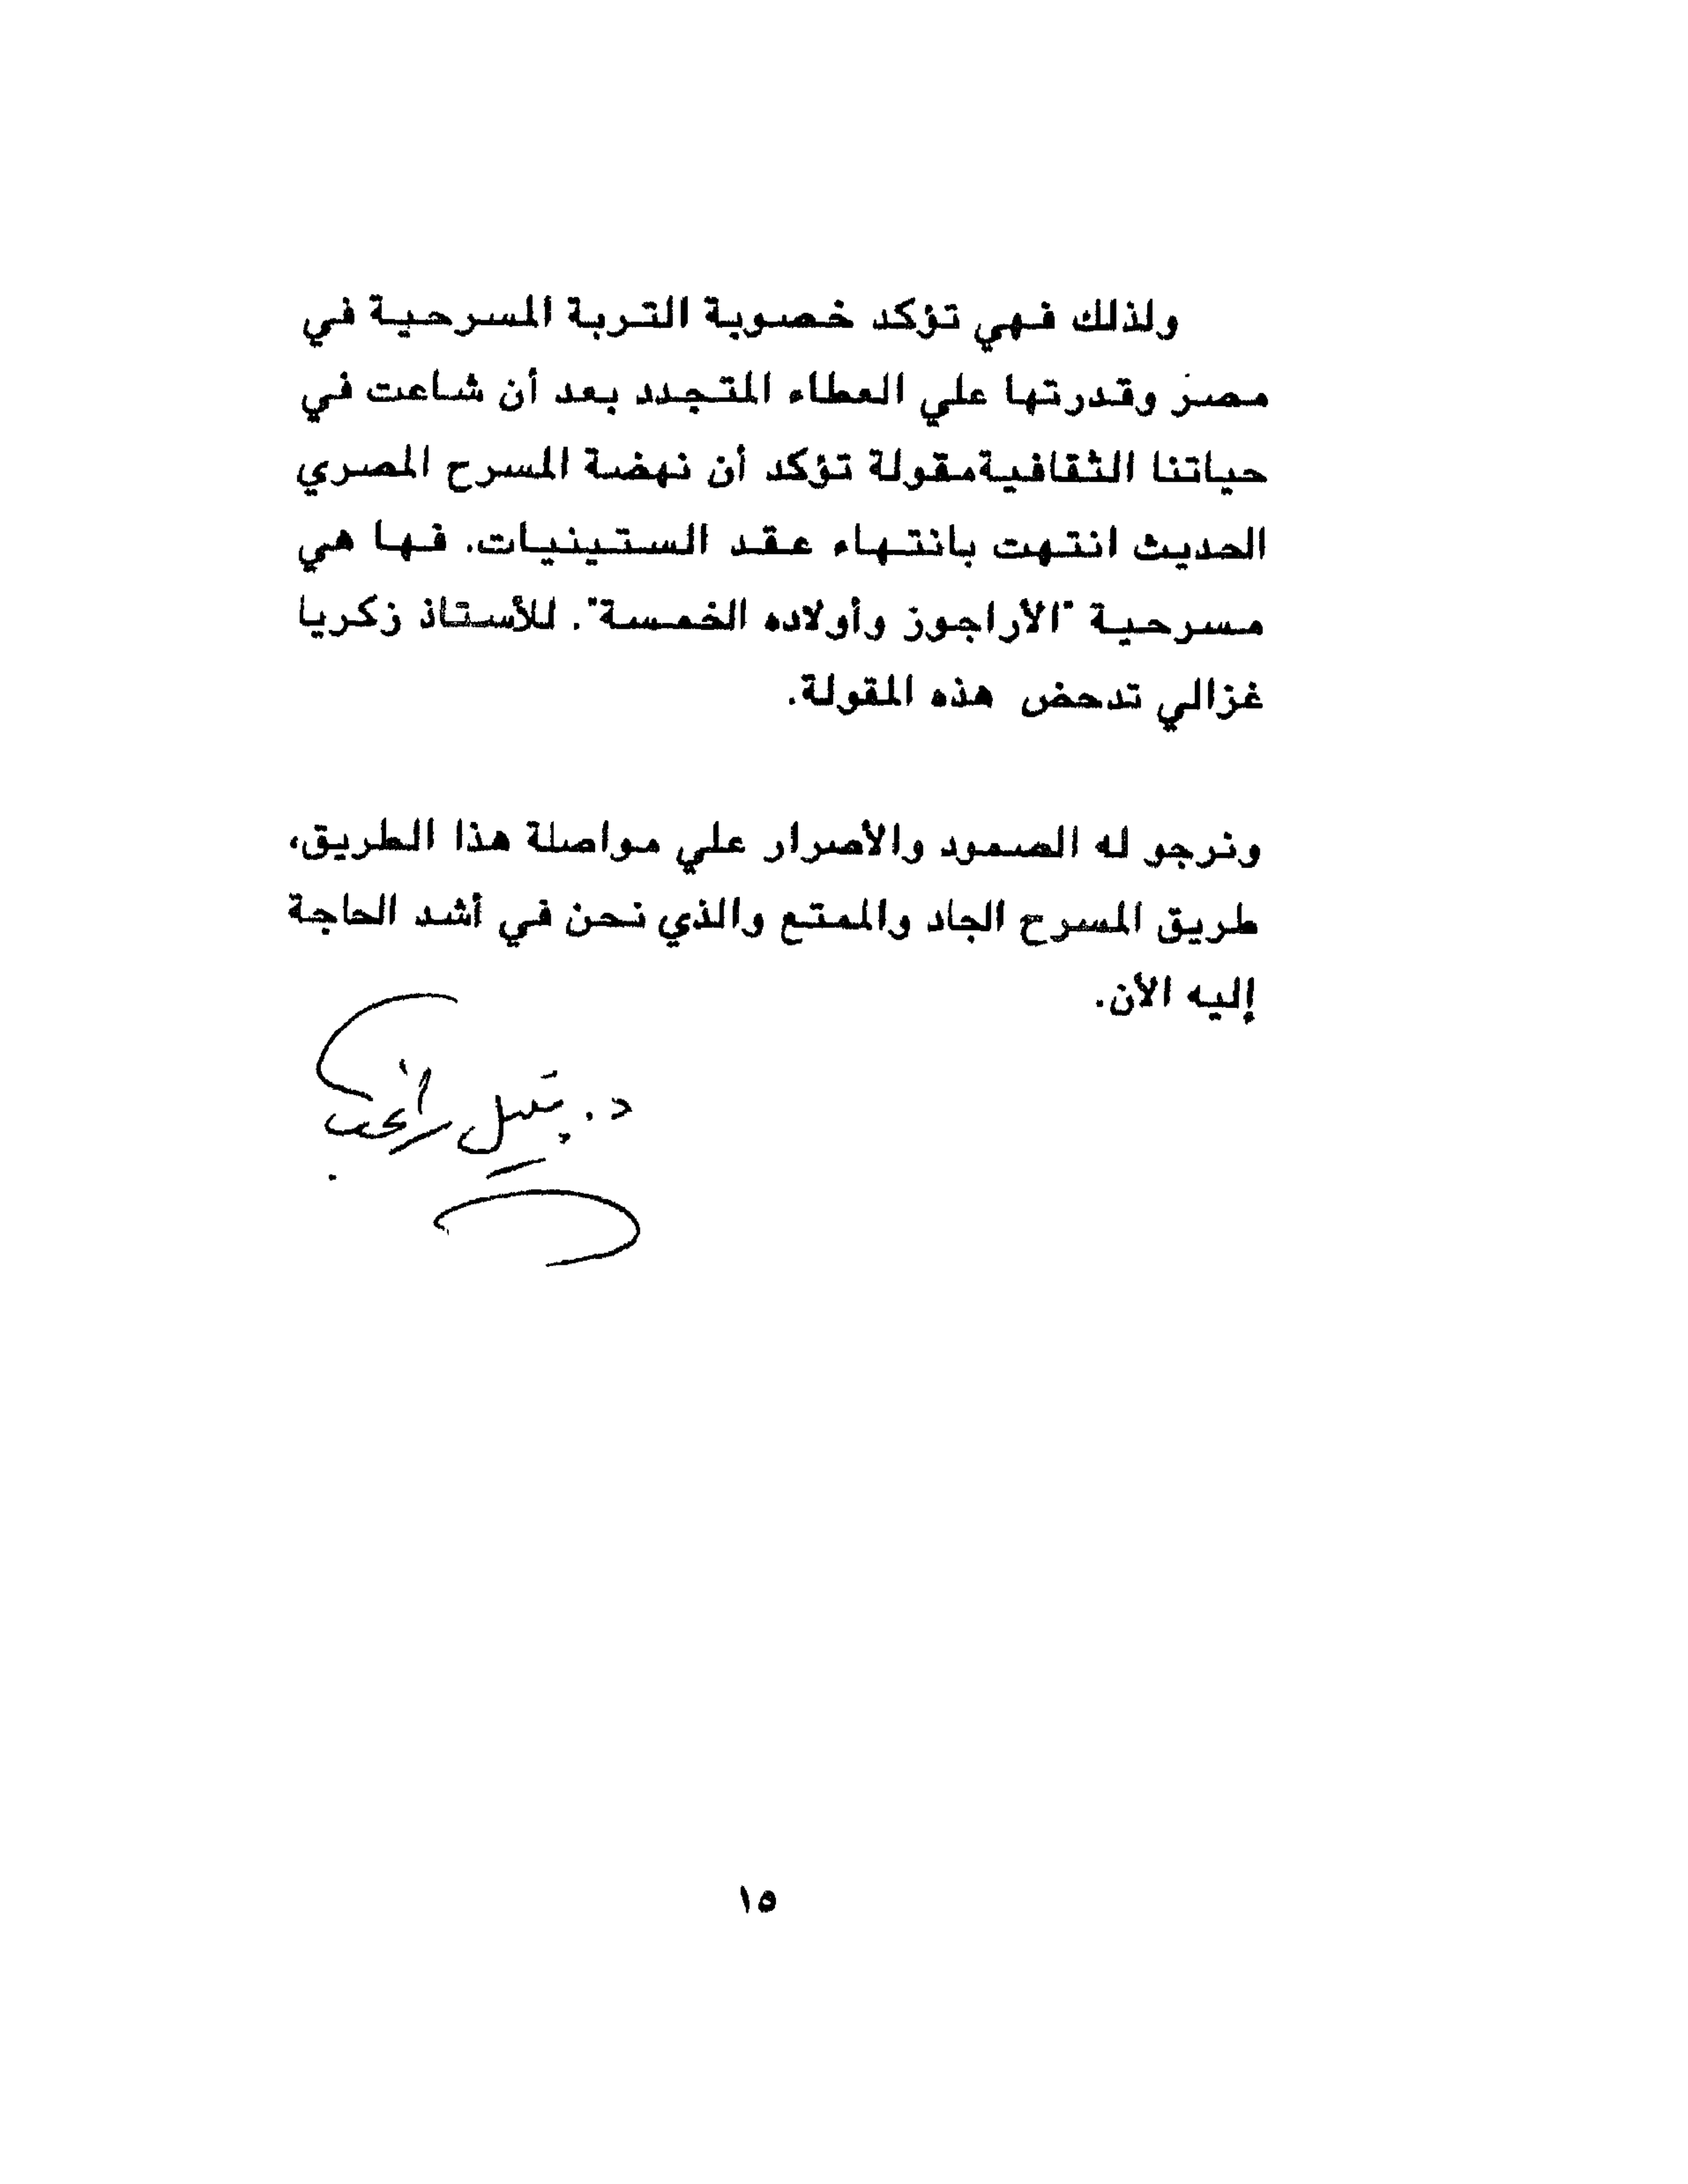 ولذلك فهي تؤكد خصوبة التربة المسرحية في
مصر وقدرتها علي العطاء المتجدد بعد أن شاعت في
حياتنا الثقافيةمقولة تؤكد أن نهضة المسرح المصري
الحديث انتهت بانتهاء عقد الستينيات. فها هي
مسرحية "الأراجوز وأولاده الخمسة". للأستاذ زكريا
غزالي تدحض هذه المقولة.
ونرجو له الصمود والأصرار علي مواصلة هذا الطريق،
طريق المسرح الجاد والممتع والذي نحن في أشد الحاجة
إليه الأن.
د. نبيل راغب
١٥